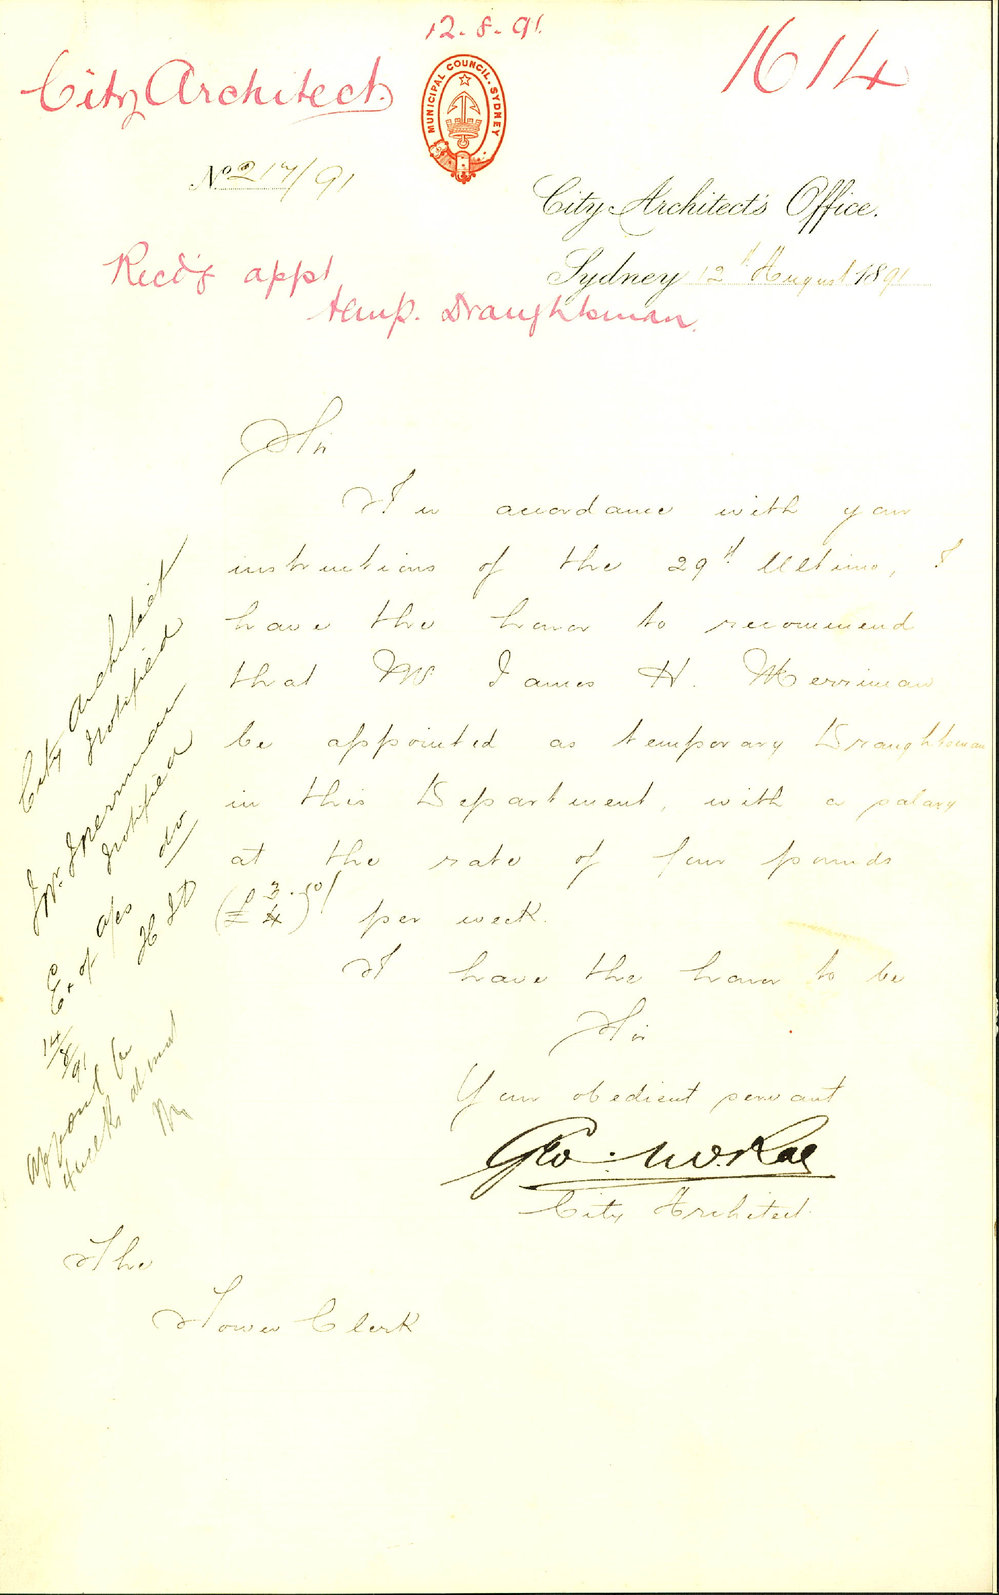 12.8.91
City Architect
1614
MUNICIPAL COUNCIL. SYDNEY
No 217/91
City Architect's Office.
Sydney 12th August 1891
Recd'g appt
temp. Draughtsman.
Sir
In accordance with your
instructions of the 29th Ultimo, I
have the honor to recommend
that Mr James H. Merriman
be appointed as temporary Draughtsman
in this Department, with a salary
at the rate of four pounds
(£4) 3.10/ per week.
I have the honor to be
Sir
Your obedient servant
Geo. McRae
City Architect.
The
Town Clerk
City Architect
Notified
Mr. Merriman
Notified
Ex of a/cs do
14/8/91
appoint for
weeks at